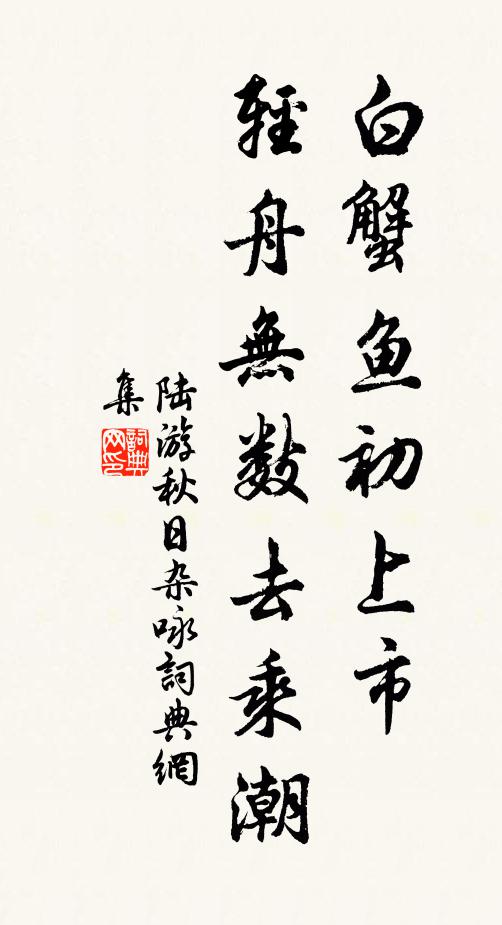 白蟹鱼初上市
輕舟無数去乘潮
陆游秋日杂咏詞典網
集
詞典
网印